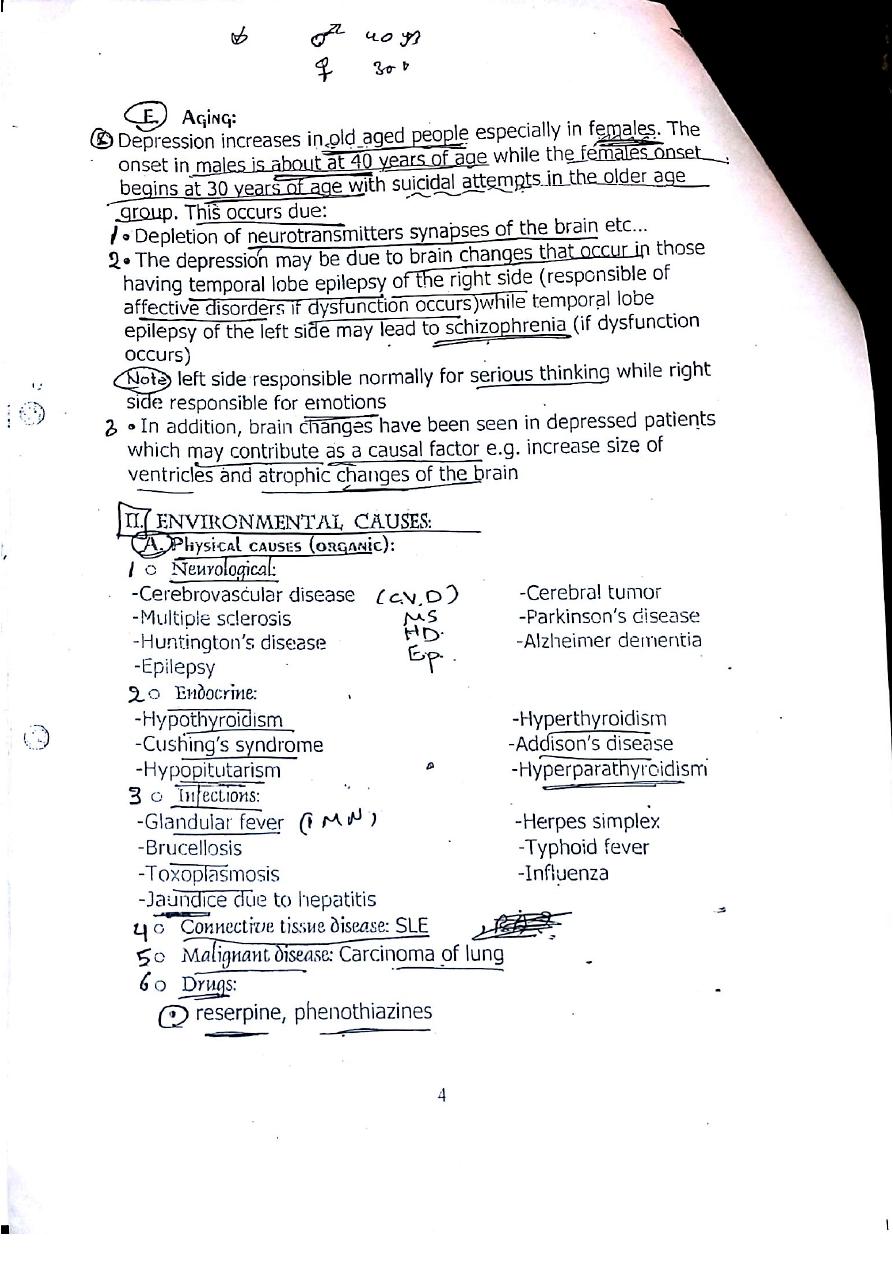 ♂ 40 y
♀ 30
E Aging:
Depression increases in old aged people especially in females. The
onset in males is about at 40 years of age while the females onset
begins at 30 years of age with suicidal attempts in the older age
group. This occurs due:
1 • Depletion of neurotransmitters synapses of the brain etc...
2 • The depression may be due to brain changes that occur in those
having temporal lobe epilepsy of the right side (responsible of
affective disorders if dysfunction occurs)while temporal lobe
epilepsy of the left side may lead to schizophrenia (if dysfunction
occurs)
Note left side responsible normally for serious thinking while right
side responsible for emotions
3 • In addition, brain changes have been seen in depressed patients
which may contribute as a causal factor e.g. increase size of
ventricles and atrophic changes of the brain
II. ENVIRONMENTAL CAUSES:
A. Physical causes (organic):
1 o Neurological:
-Cerebrovascular disease (C.V.D) -Cerebral tumor
-Multiple sclerosis MS -Parkinson's disease
-Huntington's disease HD. -Alzheimer dementia
-Epilepsy Ep.
2 o Endocrine:
-Hypothyroidism -Hyperthyroidism
-Cushing's syndrome -Addison's disease
-Hypopitutarism -Hyperparathyroidism
3 o Infections:
-Glandular fever (IMN) -Herpes simplex
-Brucellosis -Typhoid fever
-Toxoplasmosis -Influenza
-Jaundice due to hepatitis
4 o Connective tissue disease: SLE
5 o Malignant disease: Carcinoma of lung
6 o Drugs:
reserpine, phenothiazines
4